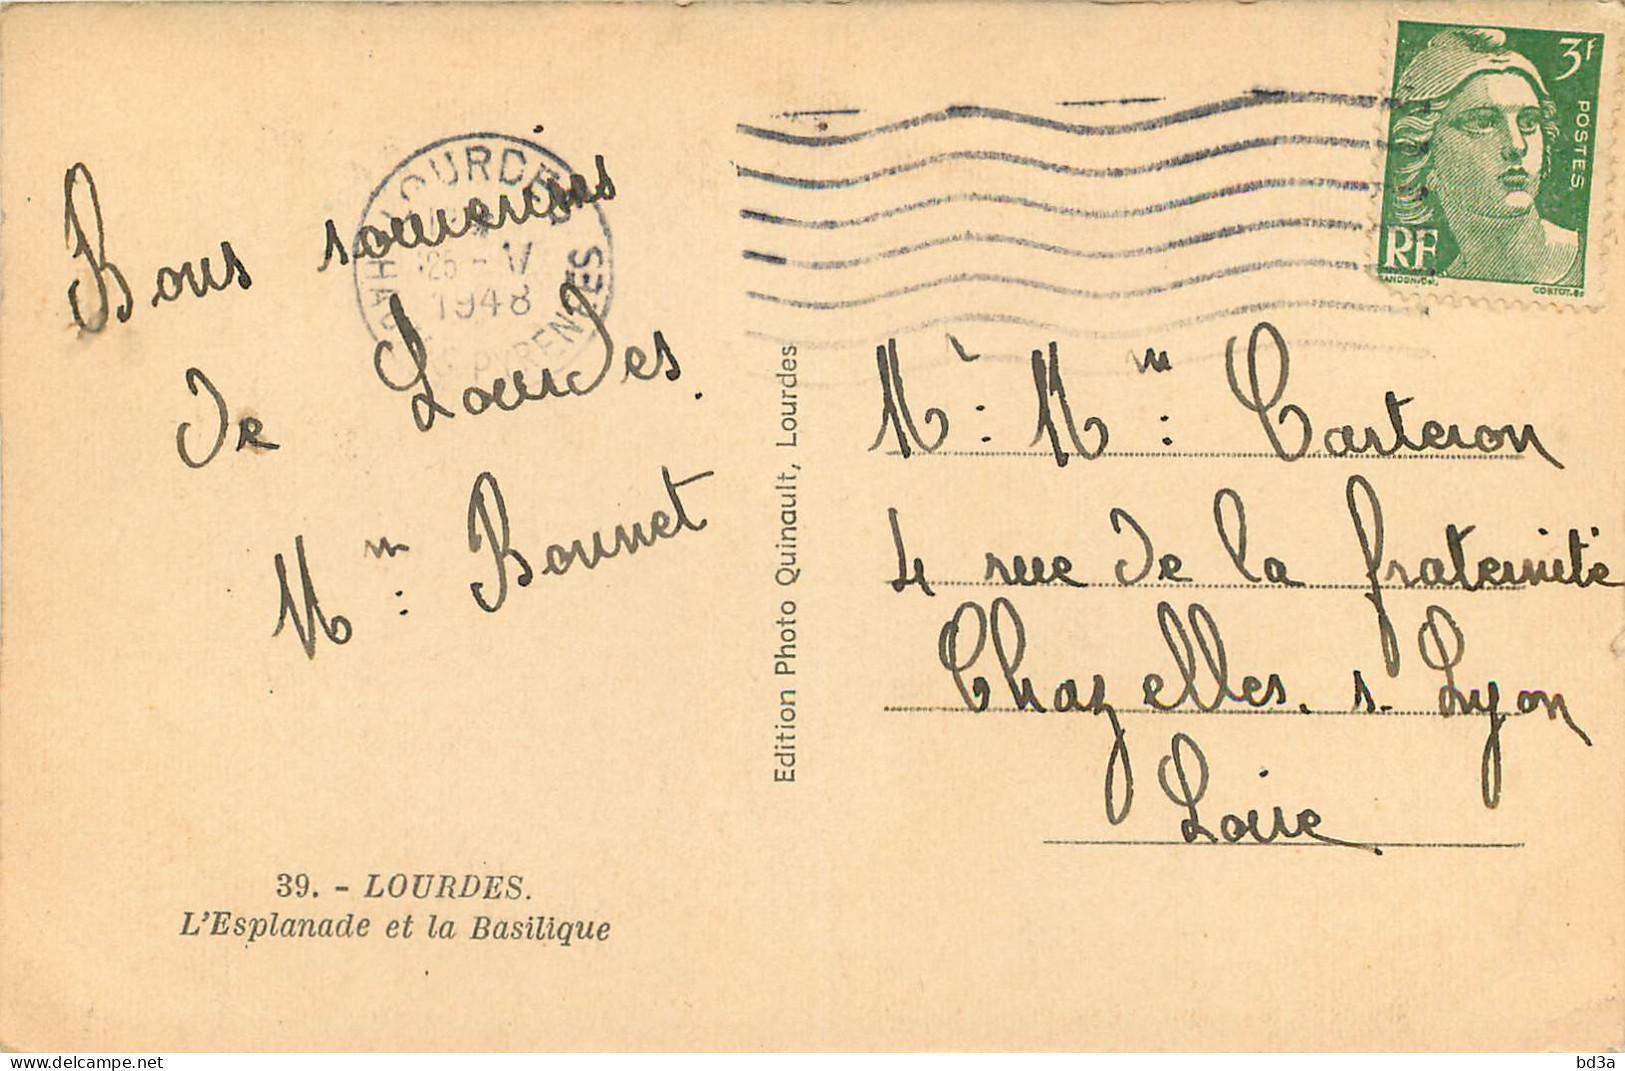 Bons souvenirs
de Lourdes.
Mm : Bonnet
39. - LOURDES.
L'Esplanade et la Basilique
Edition Photo Quinault, Lourdes
LOURDES
25 - V
1948
HAUTES PYRENEES
3f
POSTES
RF
GANDON.Del.
CORTOT.sc
Mr : Mm : Carteron
4 rue de la fraternité
Chazelles. s. Lyon
Loire
bd3a